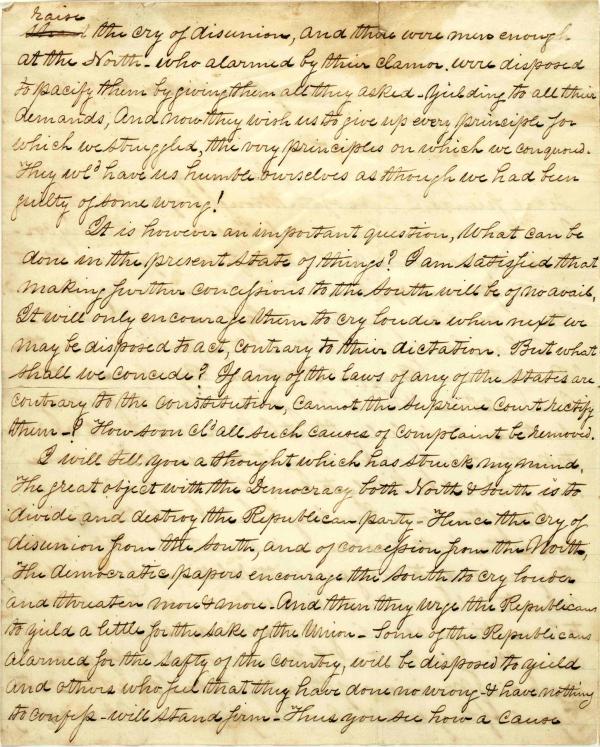 raise
the cry of disunion, and there were men enough
at the North - who alarmed by their clamor, were disposed
to pacify them by giving them all they asked - yielding to all their
demands, And now they wish us to give up every principle for
which we struggled, the very principles on which we conquered.
They wld have us humble ourselves as though we had been
guilty of some wrong!
It is however an important question, What can be
done in the present state of things? I am satisfied that
making further concessions to the South will be of no avail,
It will only encourage them to cry louder when next we
may be disposed to act, contrary to their dictation. But what
shall we concede? If any of the laws of any of the states are
contrary to the constitution, cannot the supreme court rectify
them -? How soon cld all such causes of complaint be removed.
I will tell you a thought which has struck my mind.
The great object with the Democracy both North & South is to
divide and destroy the Republican party - Hence the cry of
disunion from the South, and of concession from the North,
The democratic papers encourage the South to cry louder
and threaten more & more - And then they urge the Republicans
to yield a little for the sake of the Union - Some of the Republicans
alarmed for the safty of the country, will be disposed to yield
and others who feel that they have done no wrong - & have nothing
to confess - will stand firm - Thus you see how a cause